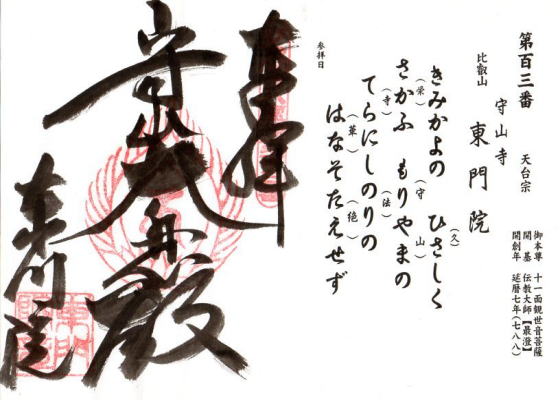 第百三番 天台宗
御本尊 十一面観世音菩薩
開基 伝教大師【最澄】
開創年 延暦七年(七八八)
守山寺
比叡山 東門院
きみかよの ひさしく
(久)
さかふ もりやまの
(栄) (守山)
てらにしのりの
(寺) (法)
はなそたえせず
(華) (絶)
参拝日
奉拝
東門院